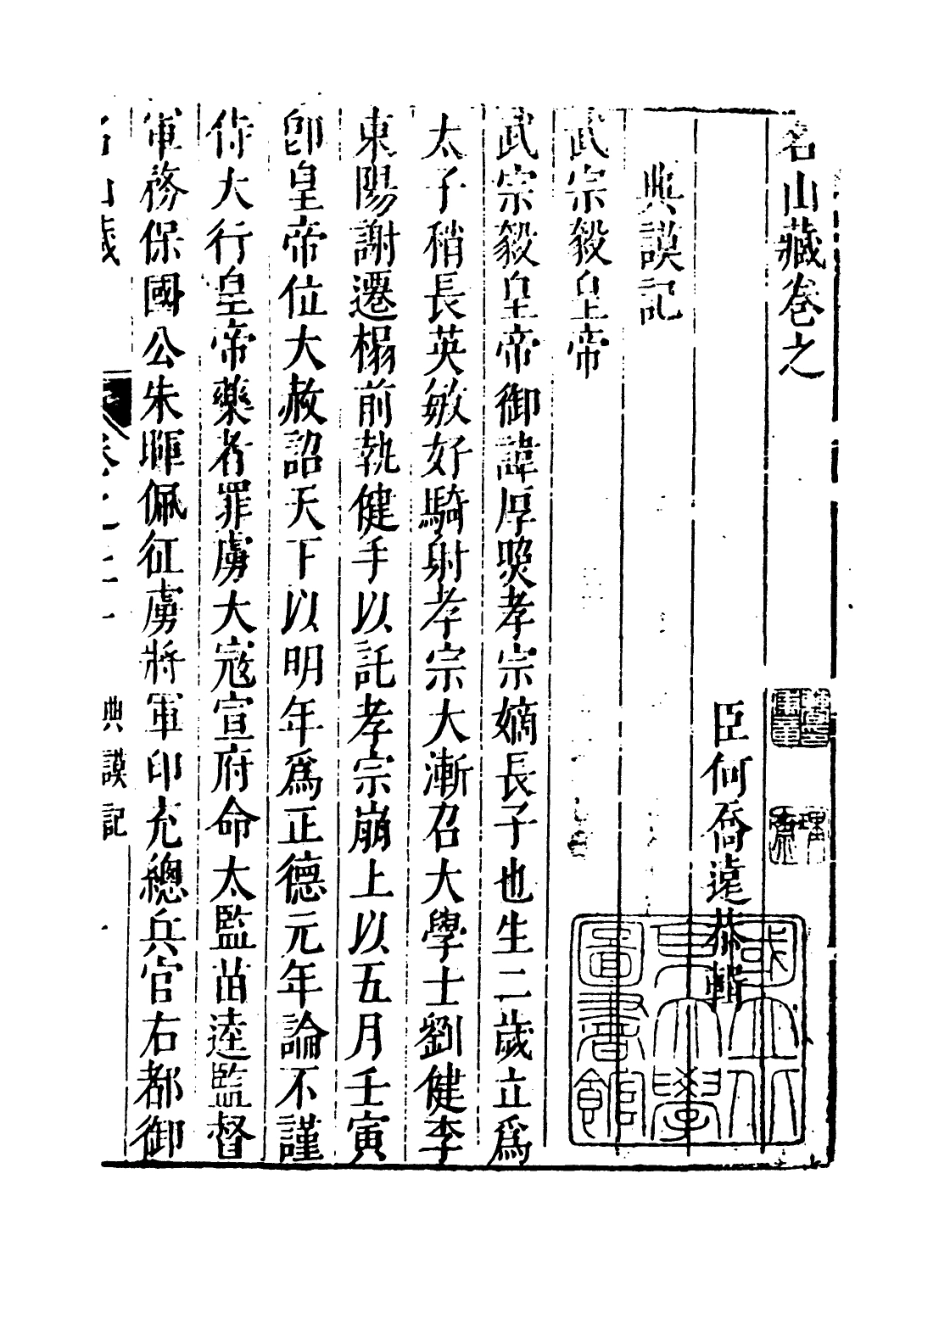 名山藏卷之
臣何喬遠恭輯
典謨記
武宗毅皇帝
武宗毅皇帝御諱厚㷖孝宗嫡長子也生二歲立爲
太子稍長英敏好騎射孝宗大漸召大學士劉健李
東陽謝遷榻前執健手以託孝宗崩上以五月壬寅
卽皇帝位大赦詔天下以明年爲正德元年論不謹
侍大行皇帝藥者罪虜大寇宣府命太監苗逵監督
軍務保國公朱暉佩征虜將軍印充總兵官右都御
名山藏
卷之
典謨記
國立北平大學圖書館